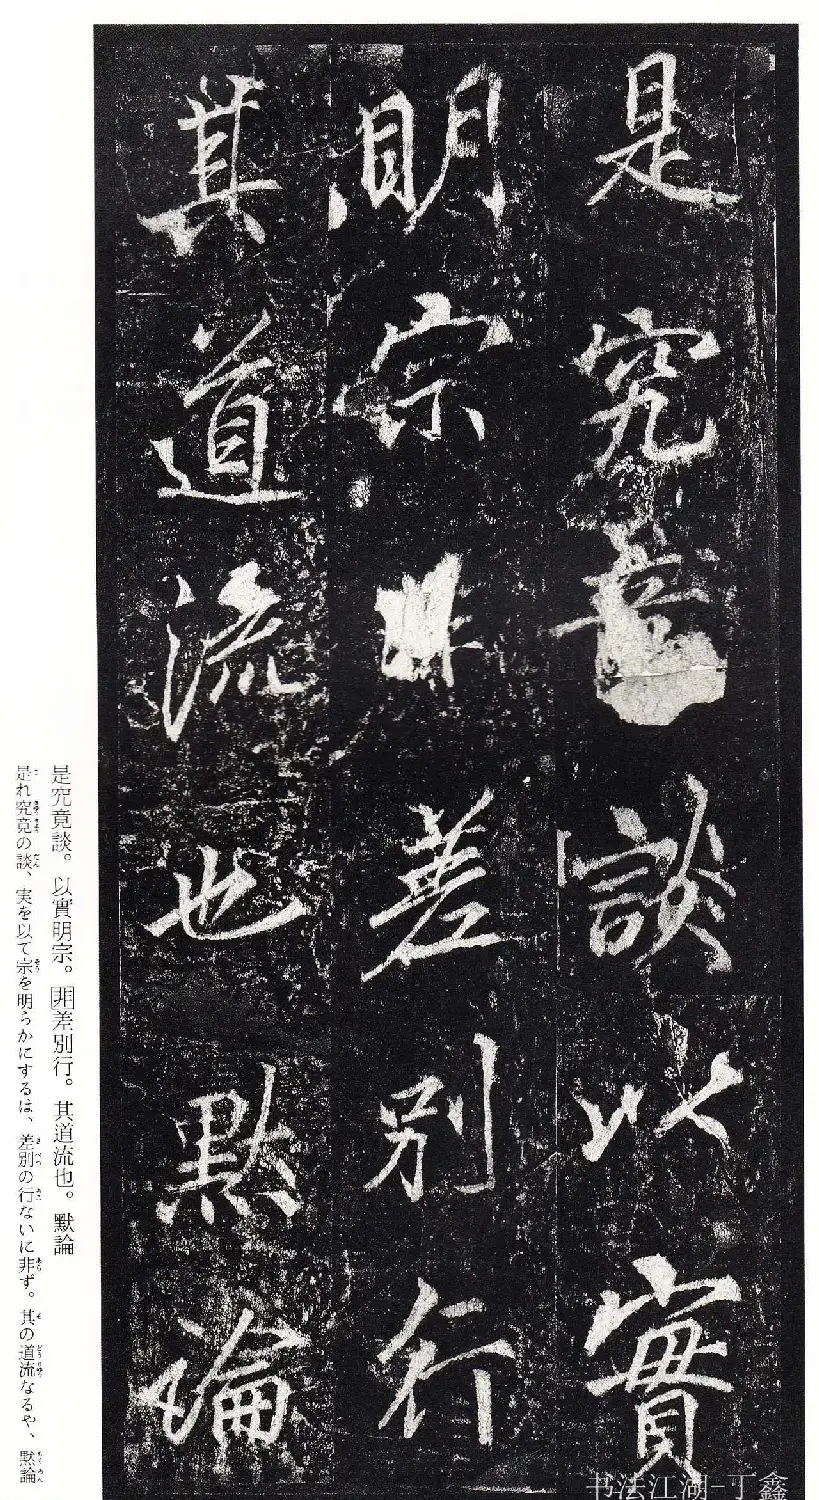 是究竟談以實
明宗非差別行
其道流也默論
是究竟談。以實明宗。非差別行。其道流也。默論
是れ究竟の談、実を以て宗を明らかにするは、差別の行ないに非ず。其の道流なるや、黙論
书法江湖-丁鑫